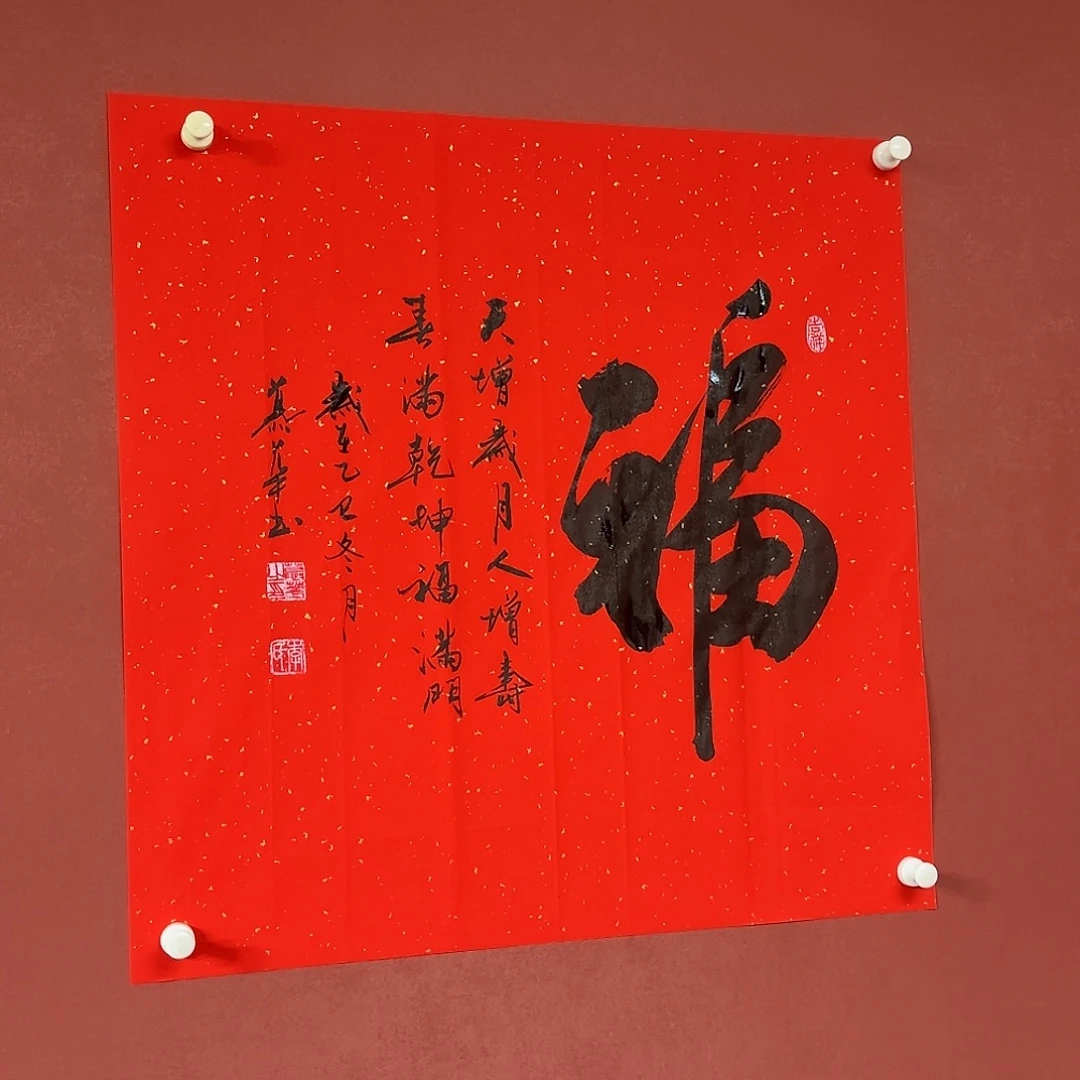 福
天增歲月人增壽
春滿乾坤福滿門
歲在乙巳冬月